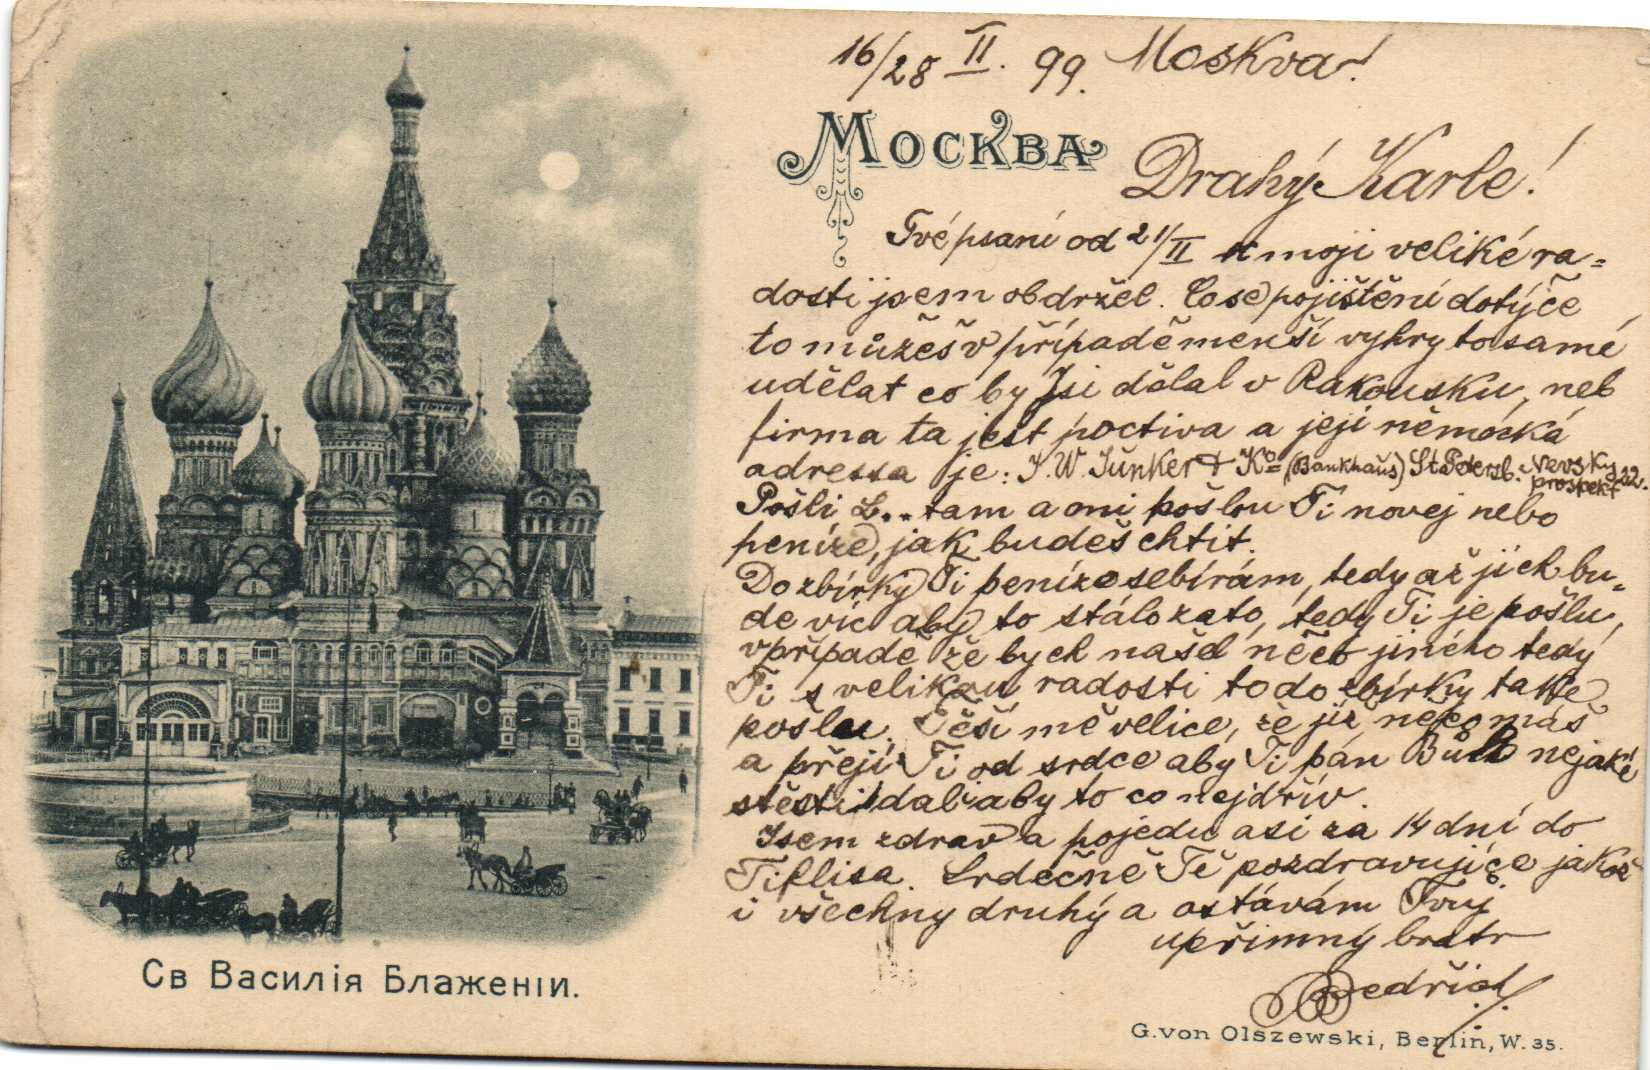 16/28 II. 99. Moskva!
Москва
Drahý Karle!
Tvé psaní od 21/II k moji veliké ra=
dosti jsem obdržel. Co se pojištění dotýče
to můžeš v případě menší vyhry to samé
udělat co by Jsi dělal v Rakousku, neb
firma ta jest poctiva a její německá
adressa je: J. W. Junker & Ko (Bankhaŭs) St Petersb. Nevsky
prospekt 12.
Pošli L.. tam a oni pošlou Ti novej nebo
peníze, jak budeš chtit.
Do zbírky Ti peníze sebírám, tedy až jich bu=
de víc aby to stálo zato, tedy Ti je pošlu,
v případě že bych našel něco jiného tedy
Ti s velikou radosti to do zbírky take
pošlu. Těší mě velice, že již neco máš
a přeji Ti od srdce aby Ti pán Bůh nejaké
stěsti dal a aby to co nejdřív.
Jsem zdrav a pojedu asi za 14 dní do
Tiflisa. Srdečně Tě pozdravujíce jakož
i všechny druhý a ostávám Tvuj
upřimný bratr
Bedřich
Св Василія Блаженіи.
G. von Olszewski, Berlin, W. 35.